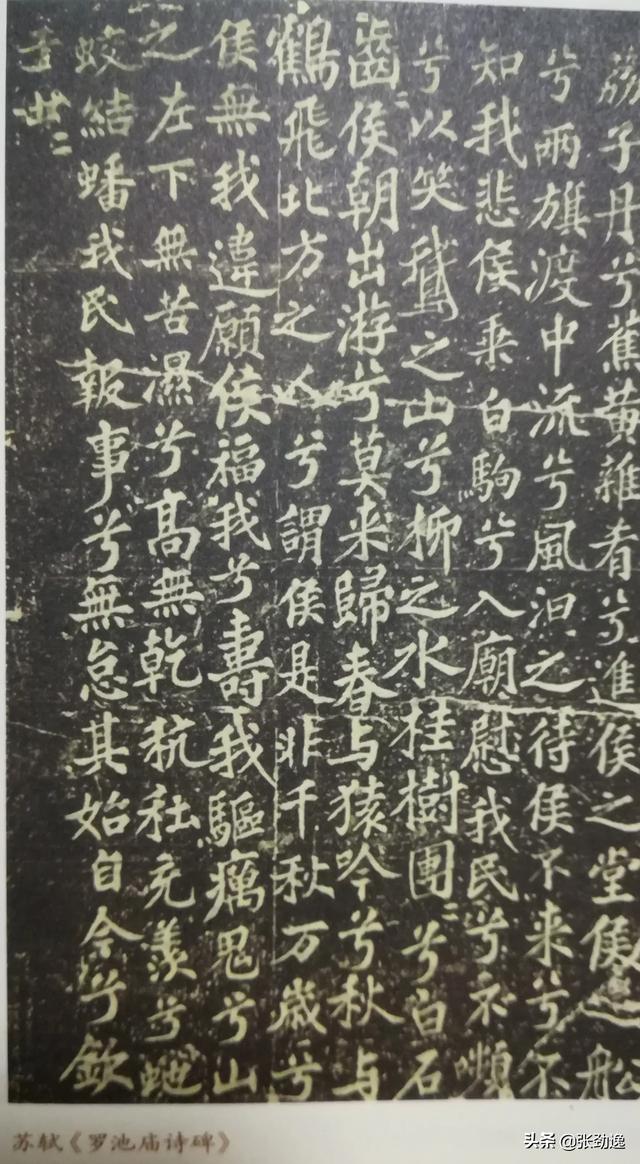 荔子丹兮蕉黄雜肴兮進侯之堂侯之船
兮兩旗渡中流兮風汩之待侯不来兮不
知我悲侯乘白駒兮入廟慰我民兮不嚬
兮以笑鵝之山兮柳之水桂樹團〻兮白石
齒〻侯朝出游兮莫来歸春与猿吟兮秋与
鶴飛北方之人兮謂侯是非千秋万歲兮
侯無我違願侯福我兮壽我驅癘鬼兮山
之左下無苦濕兮高無乾秔稌充羡兮虵
蛟結蟠我民報事兮無怠其始自今兮欽
于世〻
苏轼《罗池庙诗碑》
头条 @张劲逸